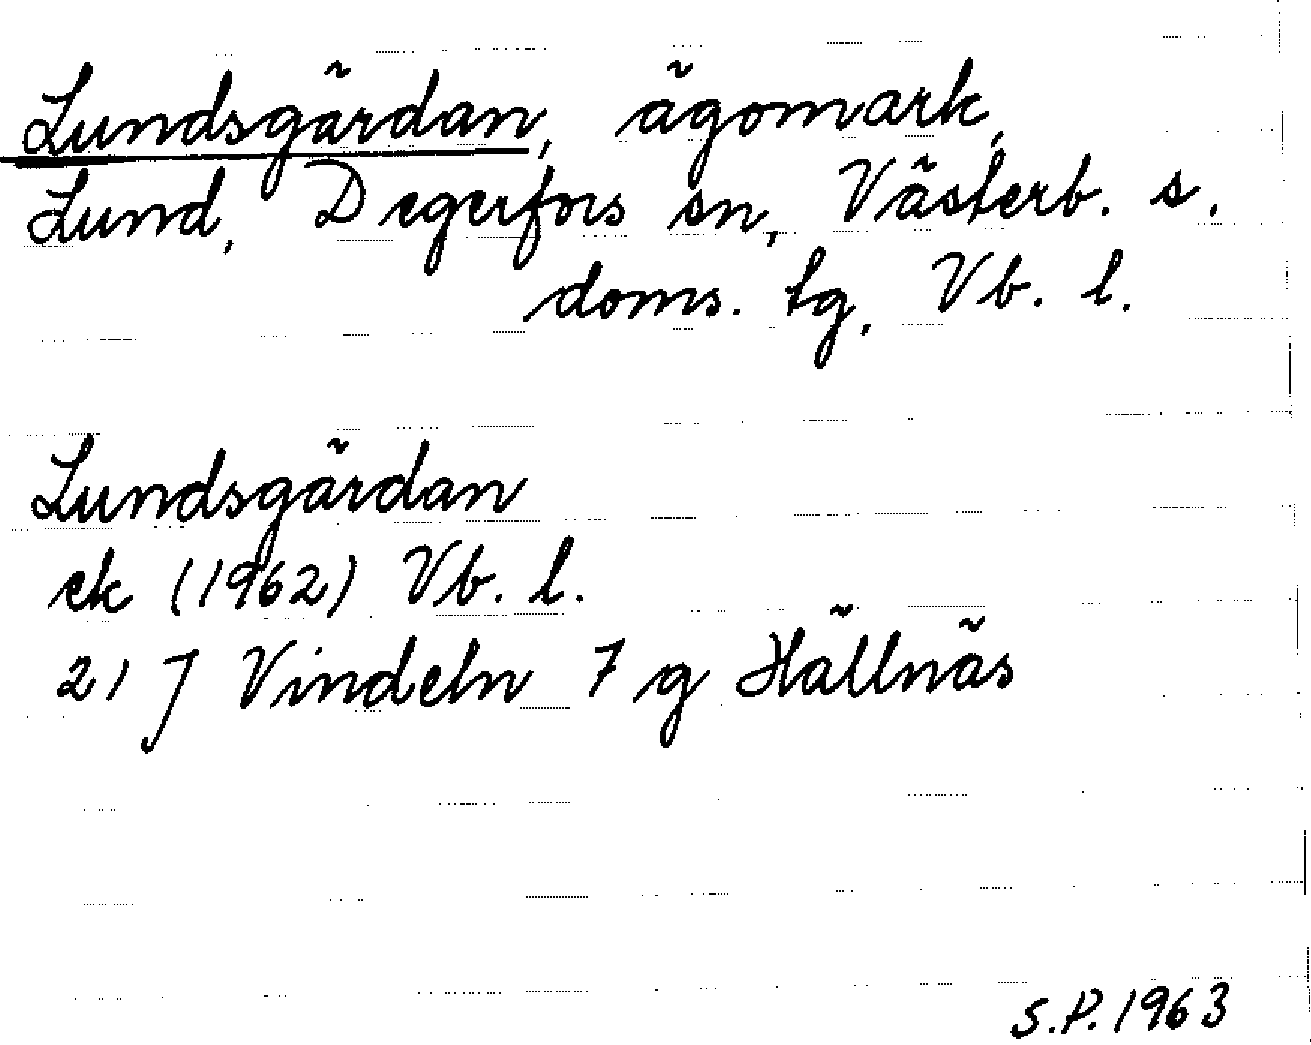 Lundsgärdan, ägomark,
Lund, Degerfors sn, Västerb. s.
doms. tg, Vb. l.
Lundsgärdan
ek (1962) Vb. l.
21 J Vindeln 7 g Hällnäs
S.P. 1963